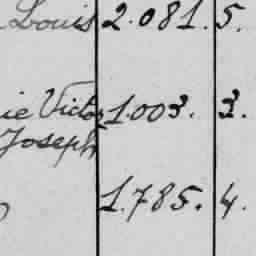 Louis 2.081. 5.
ie Victor 1.003. 3.
Joseph
1.785. 4.